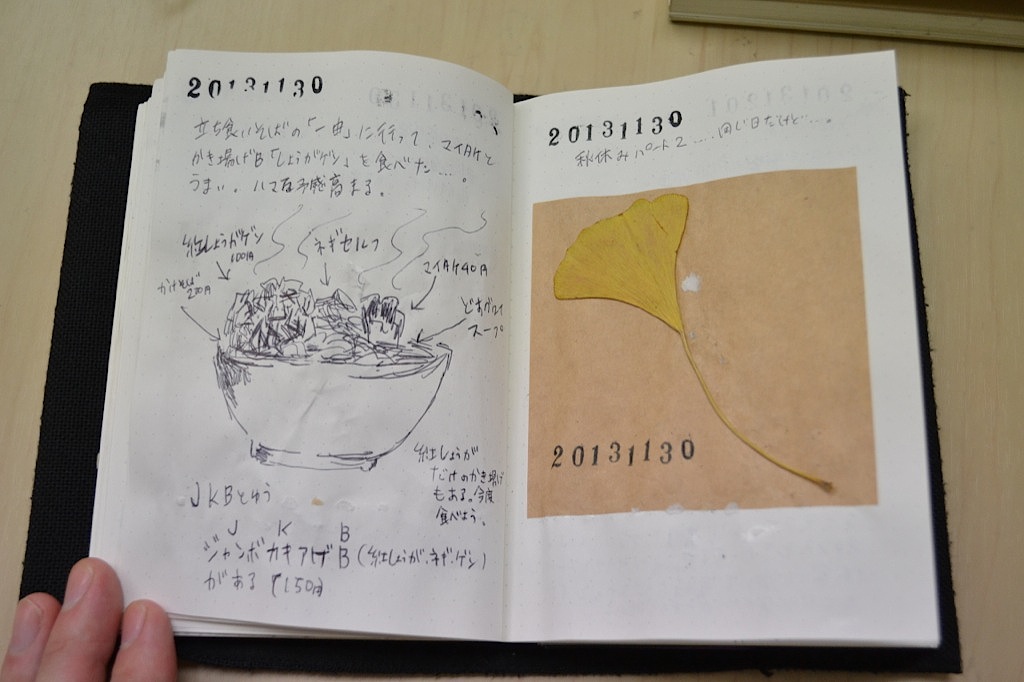 20131130
立ち食いそばの「一由」に行って、マイタケと
かき揚げB「しょうがゲソ」を食べた…。
うまい。ハマる予感高まる。
紅しょうがゲソ
100円
ネギセルフ
マイタケ40円
かけそば
200円
スープ
紅しょうが
だけのかき揚げ
もある。今度
食べよう。
JKBとゆう
J K B
ジャンボカキアゲB(紅しょうが、ネギ、ゲソ)
がある 150円
20131130
秋休みパート2……同じ日だけど…。
20131130